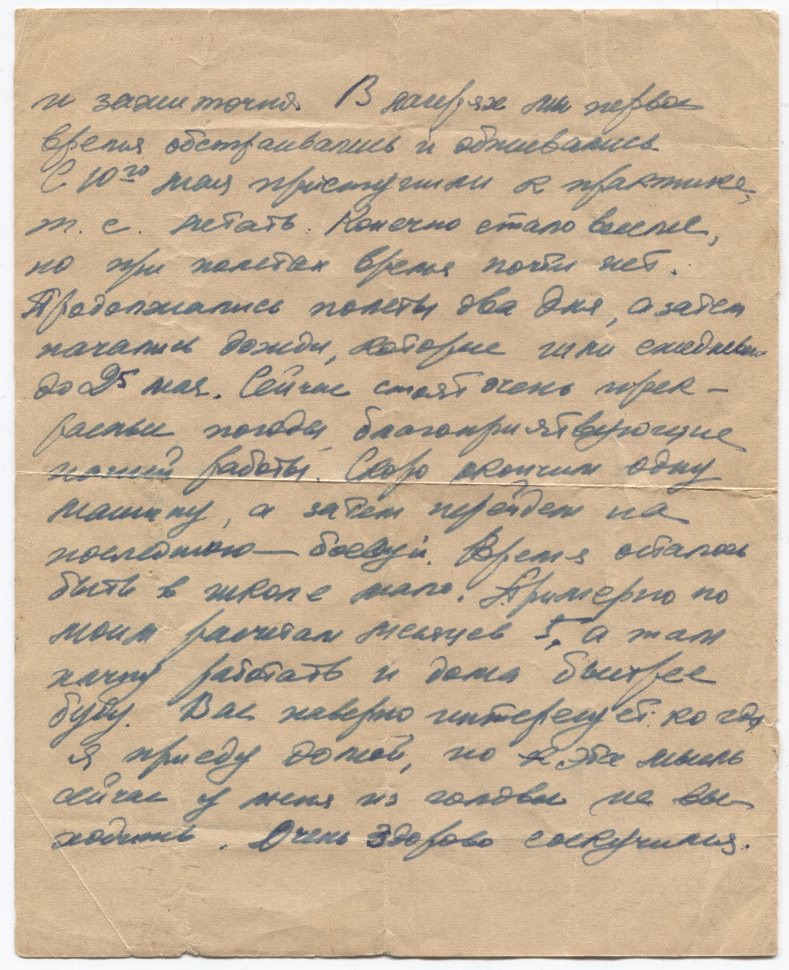 и зажиточней. В лагерях мы первое
время обстраивались и обживались
С 10го мая приступили к практике,
т. е. летать. Конечно стало веселие,
но при полетах время почти нет.
Продолжались полеты два дня, а затем
начались дожди, которые шли ежедневно
до 25 мая. Сейчас стоят очень прек-
расные погоды, благоприятствующие
нашей работы. Скоро окончим одну
машину, а затем перейдем на
последнюю — боевую. Время осталось
быть в школе мало. Примерно по
моим расчетам месяцев 5, а там
начну работать и дома быстрее
буду. Вас наверно интересует когда
я приеду домой, но эта мысль
сейчас у меня из головы не вы-
ходить. Очень здорово соскучился.